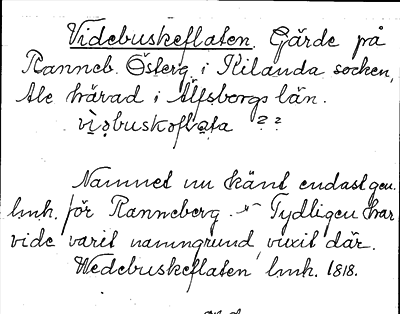 Videbuskeflaten. Gärde på
Ranneb. Österg. i Kilanda socken,
Ale härad i Älfsborgs län.
? ?
Namnet nu känt endast gen.
lmk. för Ranneberg. Tydligen har
vide varit namngrund, vuxit där.
Wedebuskeflaten lmk. 1818.